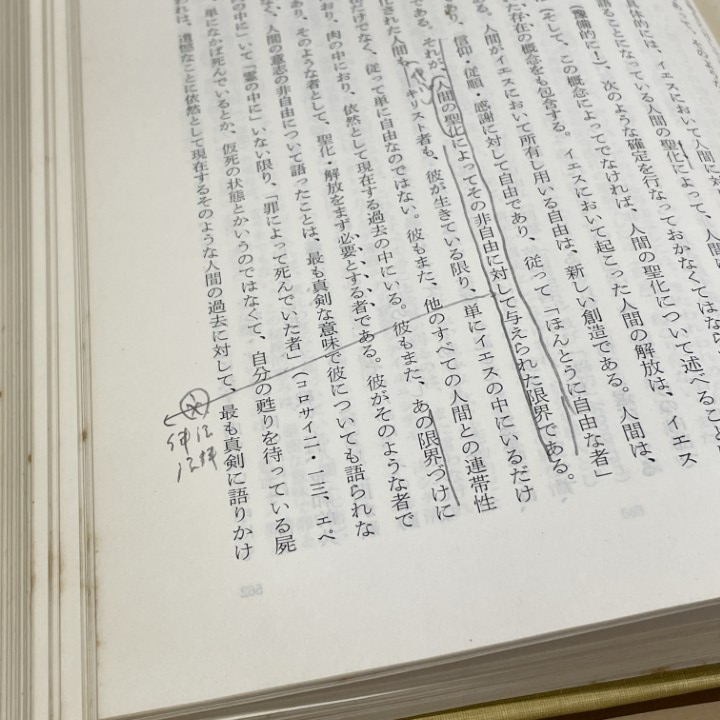 具体的には、イエスにおいて人間に対
語ることになっている人間の聖化によって、人間
(予備的に！)、次のような確定を行なっておかなくてはなら
(そして、この概念によってでなければ、人間の聖化について述べること
存在の概念をも包含する。イエスにおいて起こった人間の解放は、イエス
人間がイエスにおいて所有し用いる自由は、新しい創造である。人間は、
り、信仰・従順・感謝に対して自由であり、従って「ほんとうに自由な者」
である。それが、人間の聖化によってその非自由に対して与えられた限界である。
化された人間も、キリスト者も、彼が生きている限り、単にイエスの中にいるだけ
だけでなく、従って単に自由なのではない。彼もまた、他のすべての人間との連帯性
おり、肉の中におり、依然として現在する過去の中にいる。彼もまた、あの限界づけに
あり、そのような者として、聖化・解放をまず必要とする者である。彼がそのような者で
人間の意志の非自由について語ったことは、最も真剣な意味で彼についても語られな
の中に」いて「霊の中に」いない限り、「罪によって死んでいた者」(コロサイ二・一三、エペ
単になかば死んでいるとか、仮死の状態とかいうのではなくて、自分の甦りを待っている屍
われは、遺憾なことに依然として現在するそのような人間の過去に対して、最も真剣に語りかけ